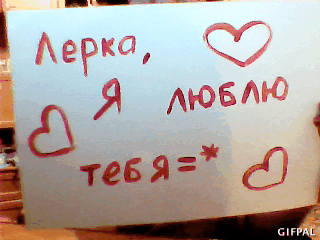 Лерка,
Я люблю
тебя=*
GIFPAL